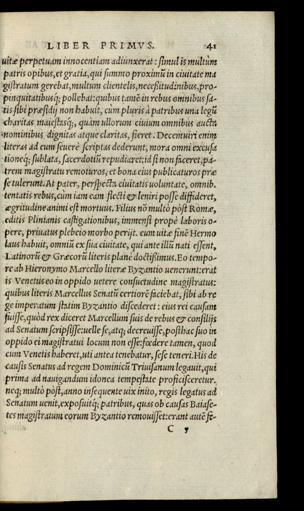 LIBER PRIMVS. 41
uitæ perpetuam innocentiam adiunxerat: simul is multùm
patris opibus, et gratia, qui summo proximũ in ciuitate ma
gistratum gerebat, multum clientelis, necessitudinibus, pro-
pinquitatibusq́; pollebat: quibus tamẽ in rebus omnibus sa-
tis sibi præsidij non habuit, cum pluris à patribus una legũ
charitas maiestasq́;, quàm ullorum ciuium omnibus aucta
nominibus dignitas atque claritas, fieret. Decemuiri enim
literas ad eum seuerè scriptas dederunt, mora omni excusa
tioneq́; sublata, sacerdotiũ repudiaret: id si non faceret, pa-
trem magistratu remoturos, et bona eius publicaturos præ
se tulerunt. At pater, perspecta ciuitatis uoluntate, omnib.
tentatis rebus, cùm iam eam flecti & leniri posse diffideret,
ægritudine animi est mortuus. Filius nõ multò pòst Romæ,
editis Plinianis castigationibus, immensi propè laboris o-
pere, priuatus plebeio morbo perijt. eum uitæ finẽ Hermo
laus habuit, omniũ ex sua ciuitate, qui ante illũ nati essent,
Latinorũ & Græcorũ literis planè doctissimus. Eo tempo-
re ab Hieronymo Marcello literæ Byzantio uenerunt: erat
is Venetus eo in oppido uetere consuetudine magistratus:
quibus literis Marcellus Senatũ certiorẽ faciebat, sibi ab re
ge imperatum statim Byzantio discederet: eius rei causam
fuisse, quòd rex diceret Marcellum suis de rebus & consilijs
ad Senatum scripsisse: uelle se, atq; decreuisse, posthac suo in
oppido ei magistratui locum non esse: fœdere tamen, quod
cum Venetis haberet, uti antea tenebatur, sese teneri. His de
causis Senatus ad regem Dominicũ Triuisanum legauit, qui
prima ad nauigandum idonea tempestate proficisceretur.
neq; multò pòst, anno insequente uix inito, regis legatus ad
Senatum uenit, exposuitq́; patribus, quas ob causas Baiase-
tes magistratum eorum Byzantio remouisset: erant autẽ fe-
C 5